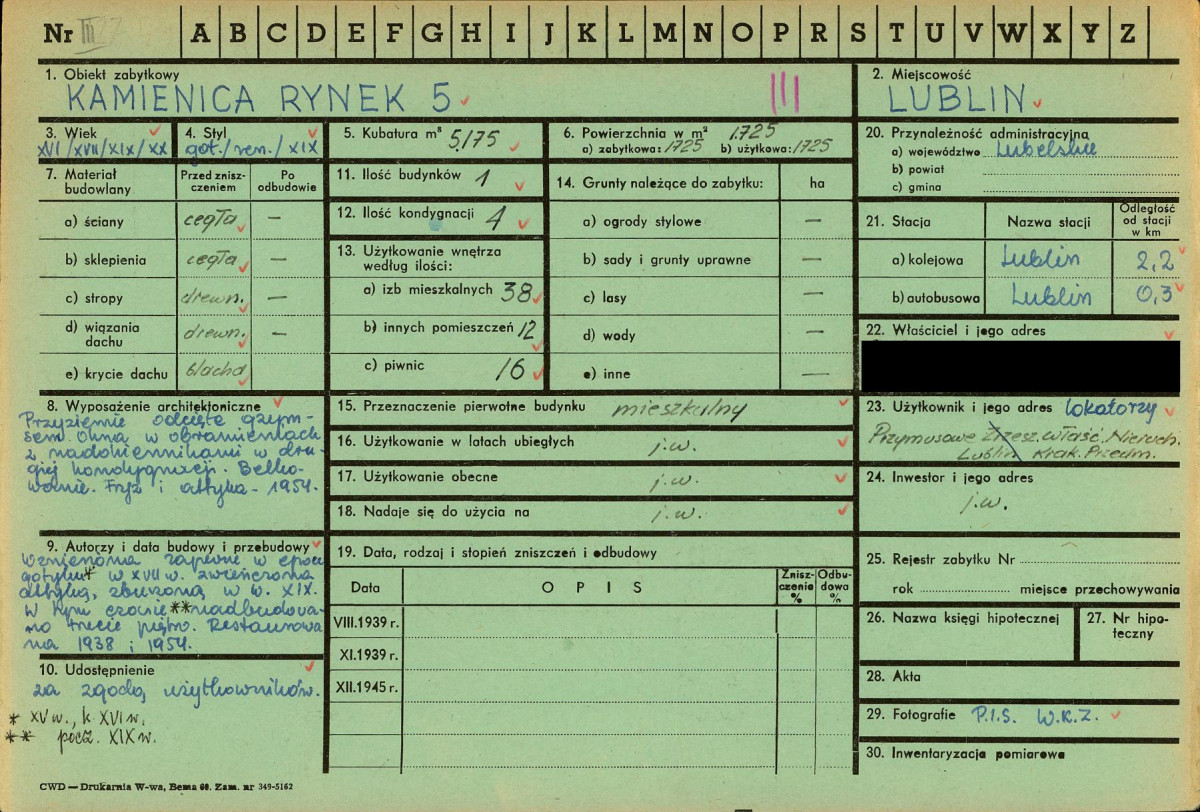 Nr III
A B C D E F G H I J K L M N O P R S T U V W X Y Z
1. Obiekt zabytkowy
KAMIENICA RYNEK 5
III
2. Miejscowość
LUBLIN
3. Wiek
XVI/XVII/XIX/XX
4. Styl
got./ren./XIX
5. Kubatura m³ 5.175
6. Powierzchnia w m² 1.725
a) zabytkowa: 1725 b) użytkowa: 1725
7. Materiał budowlany
Przed zniszczeniem
Po odbudowie
a) ściany cegła —
b) sklepienia cegła —
c) stropy drewn. —
d) wiązania dachu drewn. —
e) krycie dachu blacha
8. Wyposażenie architektoniczne
Przyziemie odcięte gzym-
sem. Okna w obramieniach
z nadokiennikami w dru-
giej kondygnacji. Belko-
wanie. Fryz i attyka - 1954.
9. Autorzy i data budowy i przebudowy
Wzniesiona zapewne w epoce
gotyku* w XVII w. zwieńczona
attyką, zburzoną w w. XIX.
W tym czasie ** nadbudowa-
no trzecie piętro. Restaurowa-
na 1938 i 1954.
10. Udostępnienie
za zgodą użytkowników.
* XV w., k. XVI w.
** pocz. XIX w.
11. Ilość budynków 1
12. Ilość kondygnacji 4
13. Użytkowanie wnętrza według ilości:
a) izb mieszkalnych 38
b) innych pomieszczeń 12
c) piwnic 16
14. Grunty należące do zabytku: ha
a) ogrody stylowe —
b) sady i grunty uprawne —
c) lasy —
d) wody —
e) inne —
15. Przeznaczenie pierwotne budynku mieszkalny
16. Użytkowanie w latach ubiegłych j.w.
17. Użytkowanie obecne j.w.
18. Nadaje się do użycia na j.w.
19. Data, rodzaj i stopień zniszczeń i odbudowy
Data
OPIS
Zniszczenie %
Odbudowa %
VIII.1939 r.
XI.1939 r.
XII.1945 r.
20. Przynależność administracyjna
a) województwo Lubelskie
b) powiat
c) gmina
21. Stacja
Nazwa stacji
Odległość od stacji w km
a) kolejowa Lublin 2,2
b) autobusowa Lublin 0,3
22. Właściciel i jego adres
23. Użytkownik i jego adres lokatorzy
Przymusowe Zrzesz. Właśc. Nieruch.
Lublin Krak. Przedm.
24. Inwestor i jego adres
j.w.
25. Rejestr zabytku Nr
rok miejsce przechowywania
26. Nazwa księgi hipotecznej
27. Nr hipoteczny
28. Akta
29. Fotografie P.I.S. W.K.Z.
30. Inwentaryzacja pomiarowa
CWD — Drukarnia W-wa, Bema 60. Zam. nr 349-5162